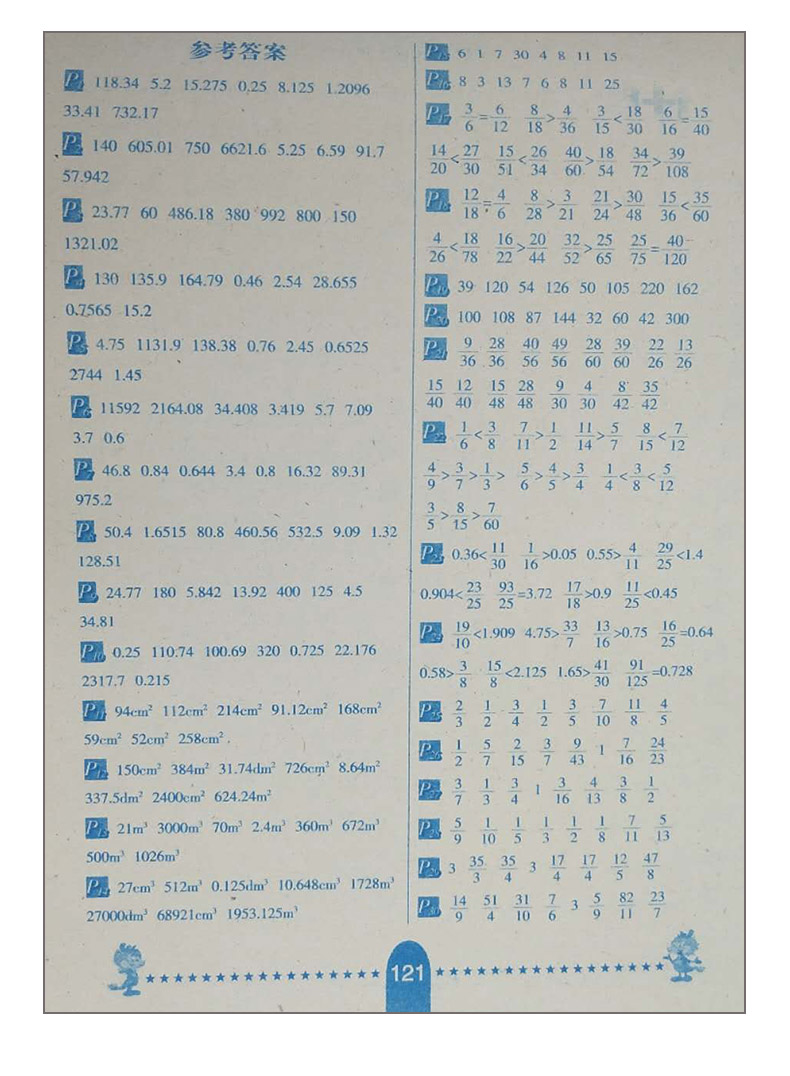 参考答案
P1 118.34 5.2 15.275 0.25 8.125 1.2096
33.41 732.17
P2 140 605.01 750 6621.6 5.25 6.59 91.7
57.942
P3 23.77 60 486.18 380 992 800 150
1321.02
P4 130 135.9 164.79 0.46 2.54 28.655
0.7565 15.2
P5 4.75 1131.9 138.38 0.76 2.45 0.6525
2744 1.45
P6 11592 2164.08 34.408 3.419 5.7 7.09
3.7 0.6
P7 46.8 0.84 0.644 3.4 0.8 16.32 89.31
975.2
P8 50.4 1.6515 80.8 460.56 532.5 9.09 1.32
128.51
P9 24.77 180 5.842 13.92 400 125 4.5
34.81
P10 0.25 110.74 100.69 320 0.725 22.176
2317.7 0.215
P11 94cm² 112cm² 214cm² 91.12cm² 168cm²
59cm² 52cm² 258cm²
P12 150cm² 384m² 31.74dm² 726cm² 8.64m²
337.5dm² 2400cm² 624.24m²
P13 21m³ 3000m³ 70m³ 2.4m³ 360m³ 672m³
500m³ 1026m³
P14 27cm³ 512m³ 0.125dm³ 10.648cm³ 1728m³
27000dm³ 68921cm³ 1953.125m³
P15 6 1 7 30 4 8 11 15
P16 8 3 13 7 6 8 11 25
P17 3/6=6/12 8/18>4/36 3/15<18/30 6/16=15/40
14/20<27/30 15/51<26/34 40/60>18/54 34/72>39/108
P18 12/18=4/6 8/28>3/21 21/24>30/48 15/36<35/60
4/26<18/78 16/22>20/44 32/52>25/65 25/75=40/120
P19 39 120 54 126 50 105 220 162
P20 100 108 87 144 32 60 42 300
P21 9/36 28/36 40/56 49/56 28/60 39/60 22/26 13/26
15/40 12/40 15/48 28/48 9/30 4/30 8/42 35/42
P22 1/6<3/8 7/11>1/2 11/14>5/7 8/15<7/12
4/9>3/7>1/3> 5/6>4/5>3/4 1/4<3/8<5/12
3/5>8/15>7/60
P23 0.36<11/30 1/16>0.05 0.55>4/11 29/25<1.4
0.904<23/25 93/25=3.72 17/18>0.9 11/25<0.45
P24 19/10<1.909 4.75>33/7 13/16>0.75 16/25=0.64
0.58>3/8 15/8<2.125 1.65>41/30 91/125=0.728
P25 2/3 1/2 3/4 1/2 3/5 7/10 11/8 4/5
P26 1/2 5/7 2/15 3/7 9/43 1 7/16 24/23
P27 3/7 1/3 3/4 1 3/16 4/13 3/8 1/2
P28 5/9 1/10 1/5 1/3 1/2 1/8 7/11 5/13
P29 3 35/3 35/4 3 17/4 17/4 12/5 47/8
P30 14/9 51/4 31/10 7/6 3 5/9 82/11 23/7
121